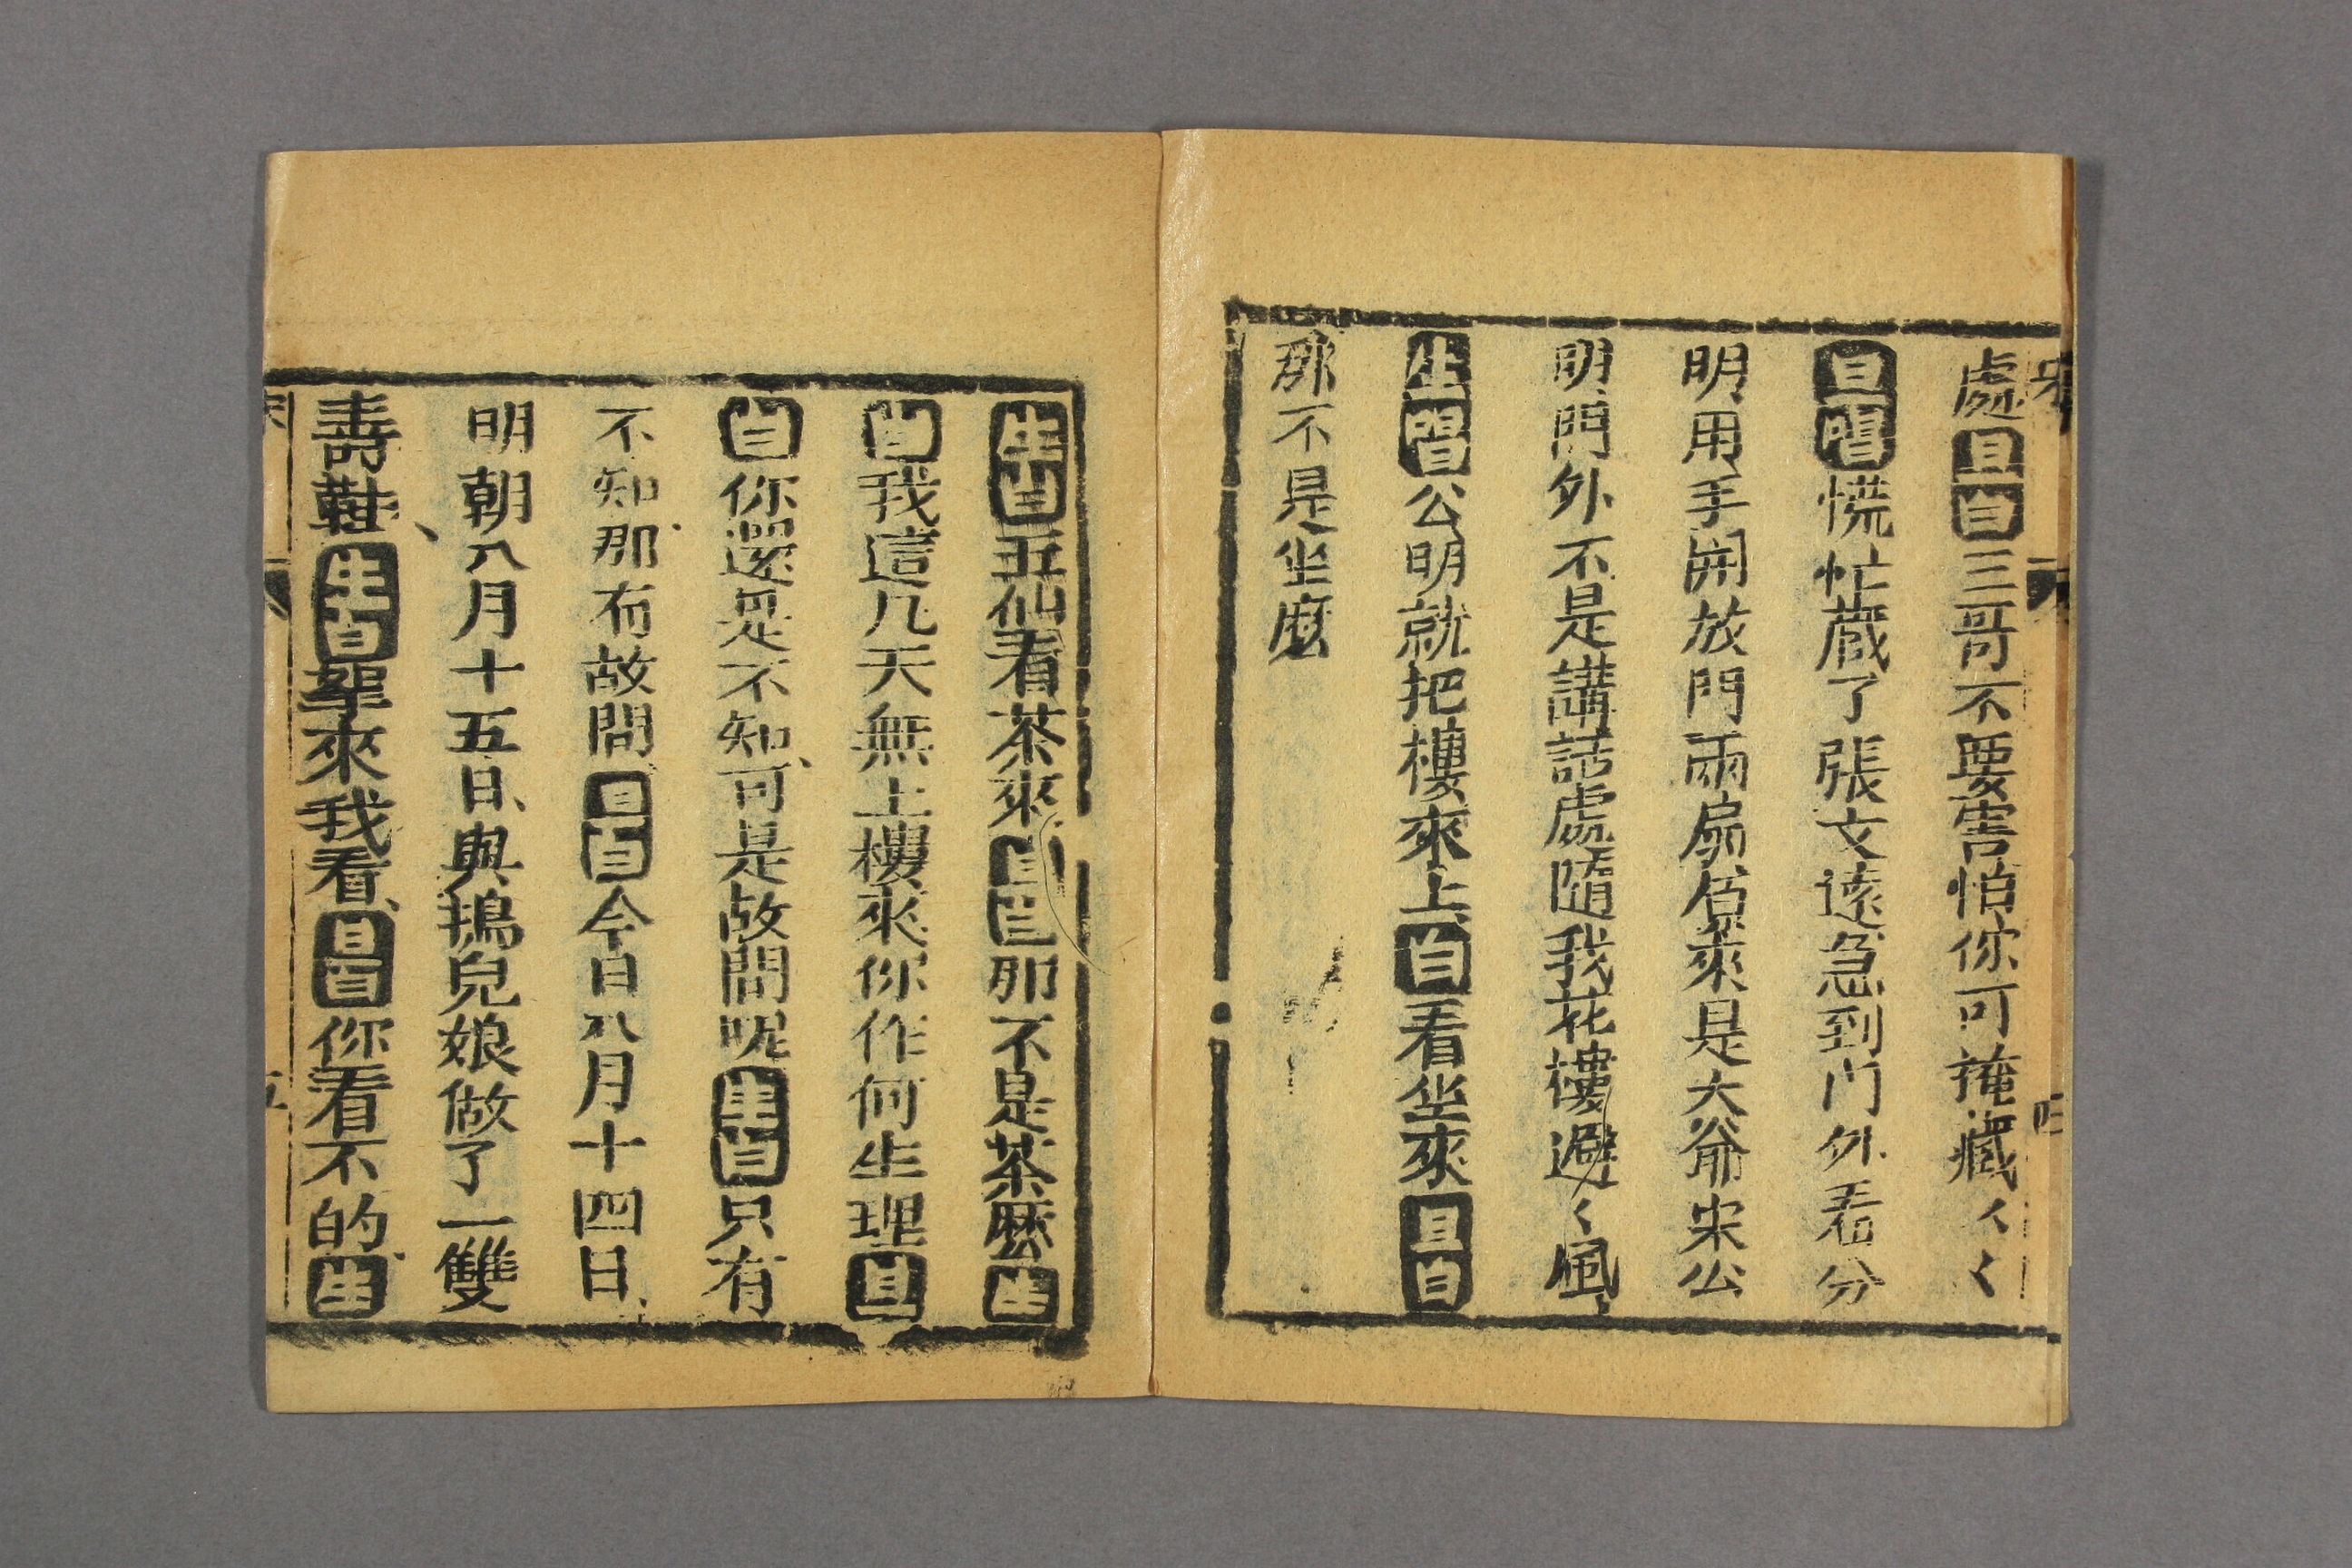 處旦白三哥不要害怕你可掩藏〻〻
旦唱慌忙蔵了張文遠急到门外看分
明用手開放門兩扇原來是大爺宋公
明門外不是講話處隨我花樓避〻風
生唱公明就把樓來上白看坐來旦白
那不是坐麼
生白五仙看茶來旦白那不是茶麽生
白我這几天無上樓來你作何生理旦
白你還是不知可是故問呢生白只有
不知那有故問旦白今日八月十四日
明朝八月十五日與鴇兒娘做了一雙
壽鞋生白拏來我看旦白你看不的生